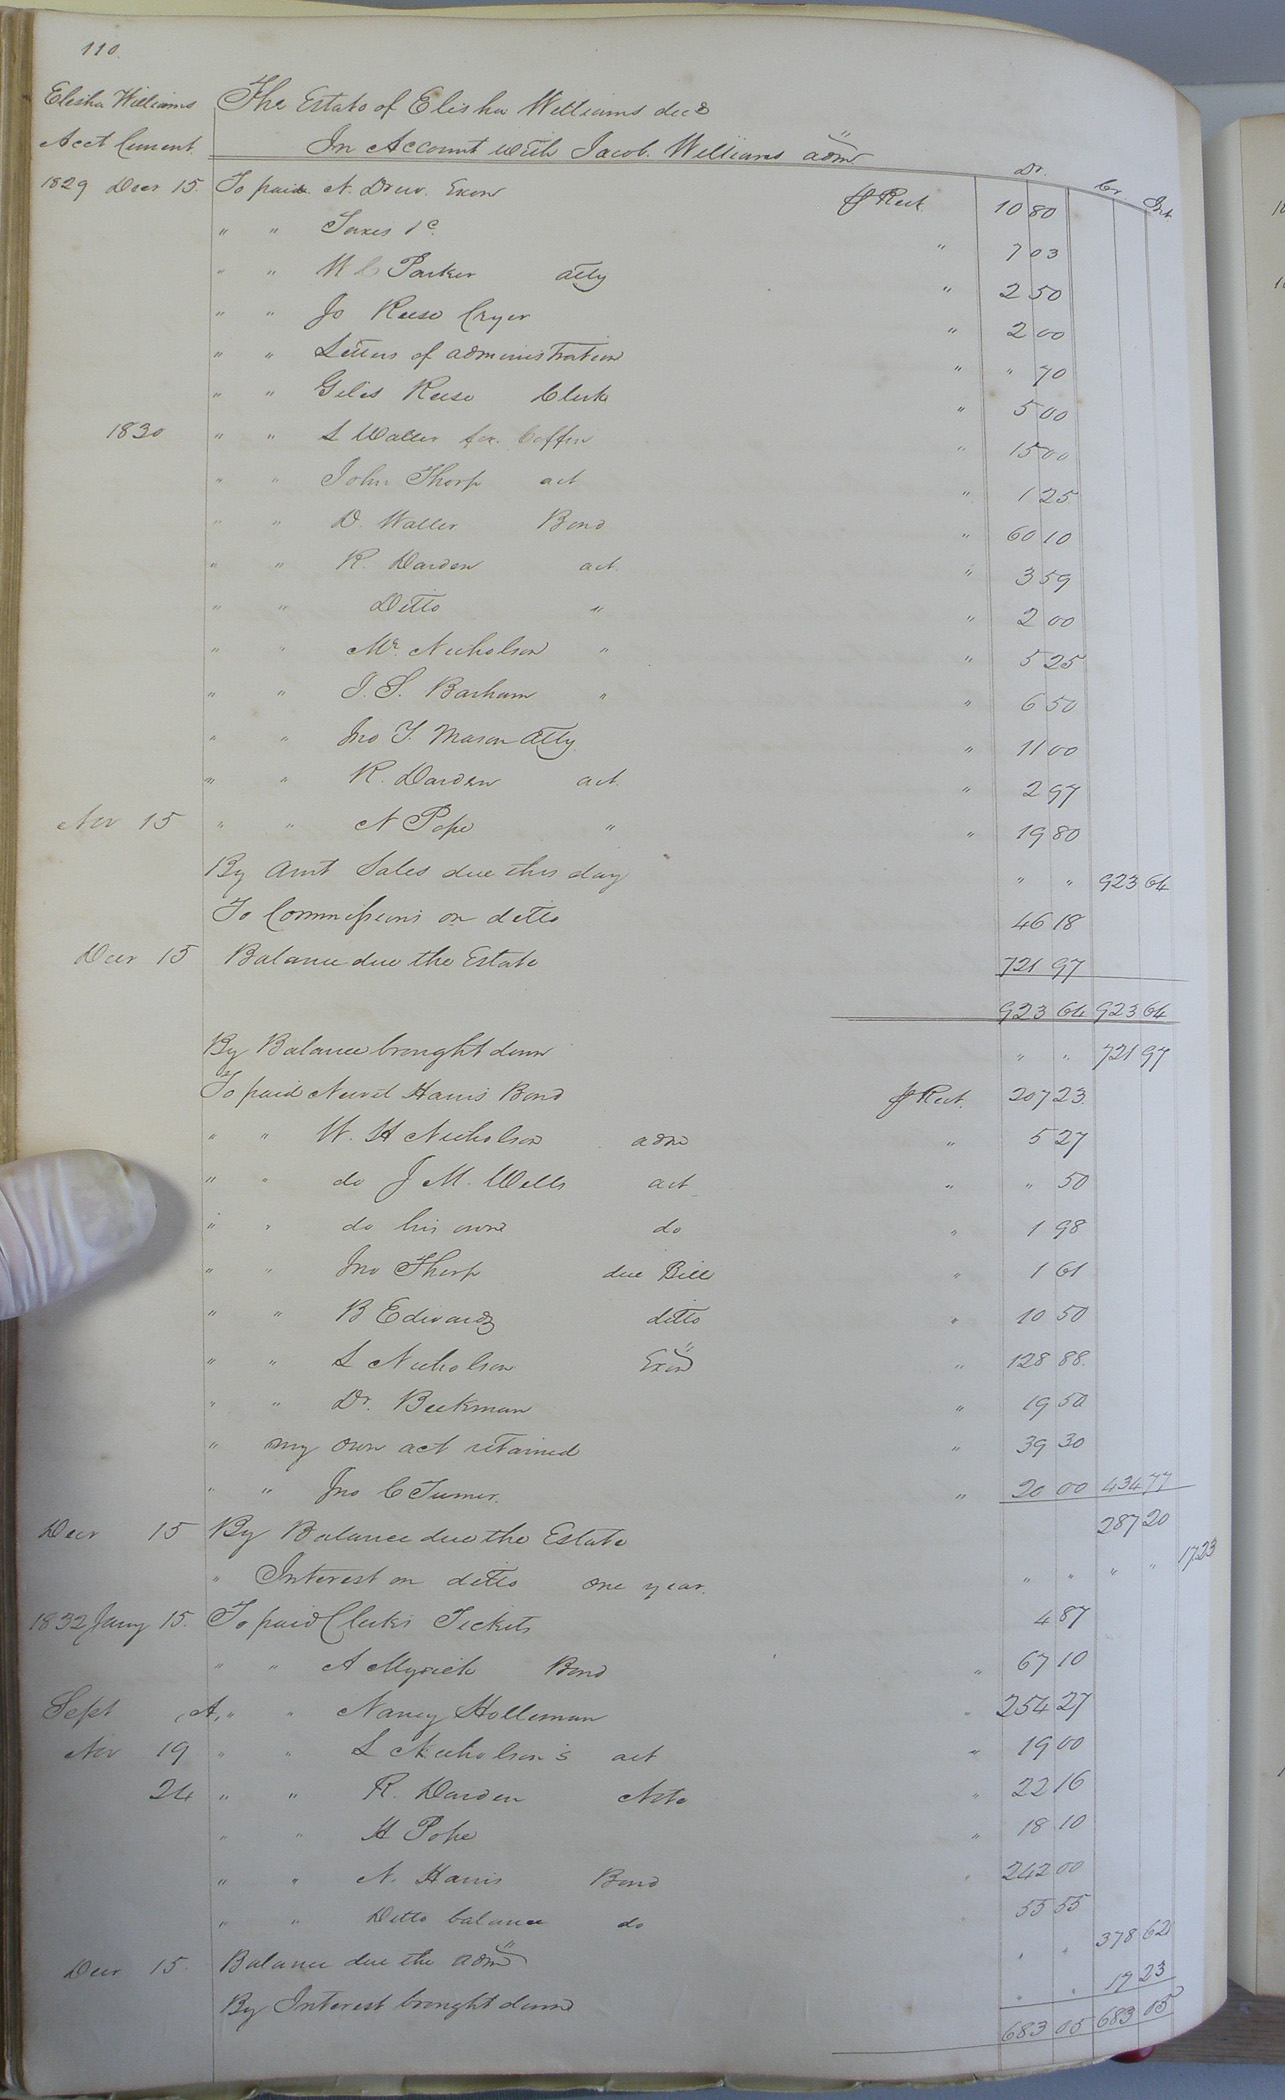 110.
Elisha Williams The Estate of Elisha Williams decd
Acct Current. In Account with Jacob Williams admr
Dr. Cr. Int
1829 Decr 15. To paid N. Drew. Exor pr Rect. 10 80
" " Taxes &c. " 7 03
" " W C Parker atty " 2 50
" " Jo Reese Cryer " 2 00
" " Letters of administration " " 70
" " Giles Reese Clerk " 5 00
1830 " " L Waller for Coffin " 15 00
" " John Thorp act " 1 25
" " D. Waller Bond " 60 10
" " R. Darden act. " 3 59
" " Ditto " " 2 00
" " Mr. Nicholson " " 5 25
" " J. S. Barham " " 6 50
" " Jno Y. Mason Atty. " 11 00
" " R. Darden act. " 2 97
Nov 15 " " N Pope " " 19 80
By Amt Sales due this day " " 923 64
To Commissions on ditto 46 18
Decr 15 Balance due the Estate 721 97
923 64 923 64
By Balance brought down " " 721 97
To paid Newit Harris Bond pr Rect. 207 23.
" " W. H Nicholson adm " 5 27
" " do J M. Wells act " " 50
" " do his own do " 1 98
" " Jno Thorp due Bill " 1 61
" " B Edwards ditto " 10 50
" " L Nicholson Exor " 128 88.
" " Dr. Beekman " 19 50
" my own act retained " 39 30
" " Jno C Turner. " 20 00 434 77
Decr 15 By Balance due the Estate 287 20
" Interest on ditto one year. " " " " 17 23
1832 Jany 15. To paid Clerks Tickets 4 87
" " A Myrick Bond " 67 10
Sept " " Nancy Holleman " 254 27
Nov 19 " " L Nicholson's act " 19 00
24 " " R. Darden Note " 22 16
" " H Pope " 18 10
" " N. Harris Bond " 242 00
" " Ditto balance do 55 55
Decr 15. Balance due the admr " " 378 62
By Interest brought down " " 17 23
683 05 683 05